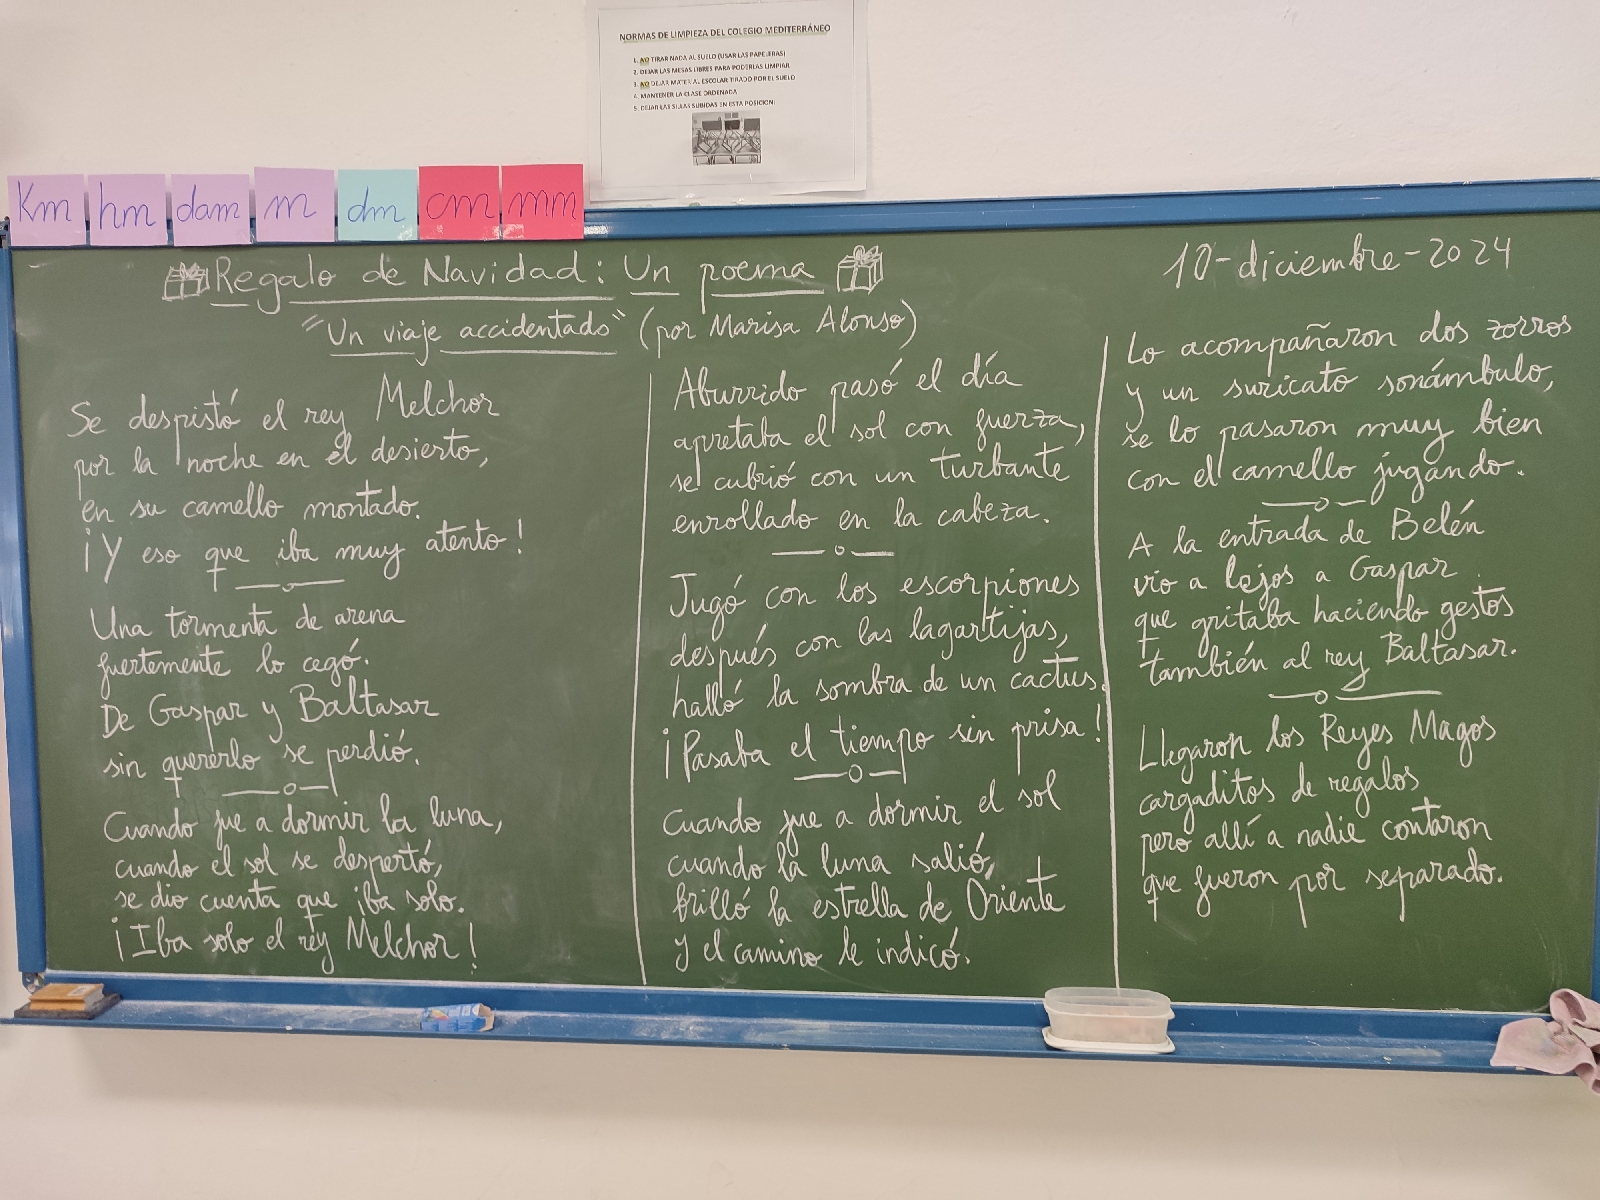 NORMAS DE LIMPIEZA DEL COLEGIO MEDITERRÁNEO
1. NO TIRAR NADA AL SUELO (USAR LAS PAPELERAS)
2. DEJAR LAS MESAS LIBRES PARA PODERLAS LIMPIAR
3. NO DEJAR MATERIAL ESCOLAR TIRADO POR EL SUELO
4. MANTENER LA CLASE ORDENADA
5. DEJAR LAS SILLAS SUBIDAS EN ESTA POSICION:
Km hm dam m dm cm mm
Regalo de Navidad: Un poema
10-diciembre-2024
"Un viaje accidentado" (por Marisa Alonso)
Se despistó el rey Melchor
por la noche en el desierto,
en su camello montado.
¡Y eso que iba muy atento!
Una tormenta de arena
fuertemente lo cegó.
De Gaspar y Baltasar
sin quererlo se perdió.
Cuando fue a dormir la luna,
cuando el sol se despertó,
se dio cuenta que iba solo.
¡Iba solo el rey Melchor!
Aburrido pasó el día
apretaba el sol con fuerza,
se cubrió con un turbante
enrollado en la cabeza.
Jugó con los escorpiones
después con las lagartijas,
halló la sombra de un cactus.
¡Pasaba el tiempo sin prisa!
Cuando fue a dormir el sol
cuando la luna salió,
brilló la estrella de Oriente
y el camino le indicó.
Lo acompañaron dos zorros
y un suricato sonámbulo,
se lo pasaron muy bien
con el camello jugando.
A la entrada de Belén
vio a lejos a Gaspar
que gritaba haciendo gestos
también al rey Baltasar.
Llegaron los Reyes Magos
cargaditos de regalos
pero allí a nadie contaron
que fueron por separado.